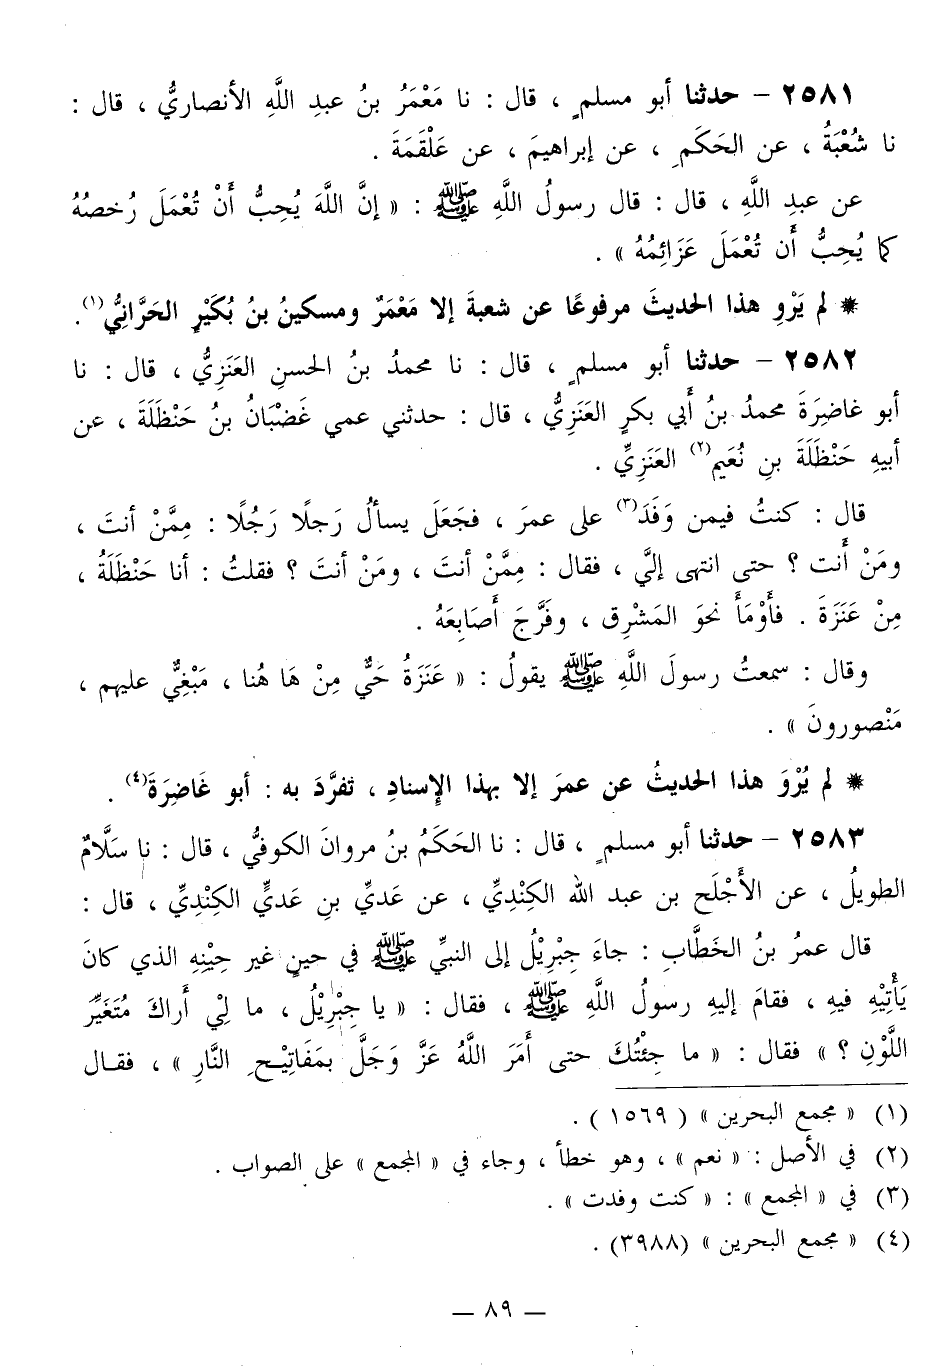 ٢٥٨١ – حدثنا أبو مسلمٍ ، قال : نا مَعْمَرُ بنُ عبدِ اللَّهِ الأنصاريُّ ، قال :
نا شُعْبَةُ ، عن الحَكَمِ ، عن إبراهيمَ ، عن عَلْقَمَةَ .
عن عبدِ اللَّهِ ، قال : قال رسولُ اللَّهِ ﷺ : « إنَّ اللَّهَ يُحِبُّ أَنْ تُعْمَلَ رُخصُهُ
كما يُحِبُّ أَن تُعْمَلَ عَزَائِمُهُ » .
* لم يَرْوِ هذا الحديثَ مرفوعًا عن شعبةَ إلا مَعْمَرٌ ومسكينُ بنُ بُكَيْرٍ الحَرَّانِيُّ(١).
٢٥٨٢ – حدثنا أبو مسلمٍ ، قال : نا محمدُ بنُ الحسنِ العَنَزِيُّ ، قال : نا
أبو غاضِرَةَ محمدُ بنُ أَبي بكرٍ العَنَزِيُّ ، قال : حدثني عمي غَضْبَانُ بنُ حَنْظَلَةَ ، عن
أبيهِ حَنْظَلَةَ بنِ نُعَيمٍ(٢) العَنَزِيِّ .
قال : كنتُ فيمن وَفَدَ(٣) على عمرَ ، فجَعَلَ يسألُ رَجلًا رَجُلًا : مِمَّنْ أنتَ ،
ومَنْ أَنت ؟ حتى انتهى إليَّ ، فقال : مِمَّنْ أنتَ ، ومَنْ أنتَ ؟ فقلتُ : أنا حَنْظَلَةُ ،
مِنْ عَنَزَةَ . فأَوْمَأَ نحوَ المَشْرِقِ ، وفَرَّجَ أَصَابِعَهُ .
وقال : سمعتُ رسولَ اللَّهِ ﷺ يقولُ : « عَنَزَةُ حَيٌّ مِنْ هَا هُنا ، مَبْغِيٌّ عليهم ،
مَنْصورونَ » .
* لم يُرْوَ هذا الحديثُ عن عمرَ إلا بهذا الإسنادِ ، تفرَّدَ به : أبو غَاضِرَةَ(٤) .
٢٥٨٣ – حدثنا أبو مسلمٍ ، قال : نا الحَكَمُ بنُ مروانَ الكوفيُّ ، قال : نا سَلَّامٌ
الطويلُ ، عن الأَجْلَحِ بن عبد الله الكِنْدِيِّ ، عن عَديِّ بنِ عَديٍّ الكِنْدِيِّ ، قال :
قال عمرُ بنُ الخَطَّابِ : جاءَ جِبْرِيْلُ إلى النبيِّ ﷺ في حينٍ غير حِيْنِهِ الذي كانَ
يَأْتِيْهِ فيه ، فقامَ إليهِ رسولُ اللَّهِ ﷺ ، فقال : « يا جِبْرِيْلُ ، ما لِيْ أَراكَ مُتَغَيِّرَ
اللَّوْنِ ؟ » فقال : « ما جِئتُكَ حتى أَمَرَ اللَّهُ عَزَّ وَجَلَّ بمَفَاتِيْحِ النَّارِ » ، فقـال
(١) « مجمع البحرين » ( ١٥٦٩ ) .
(٢) في الأصل : « نعم » ، وهو خطأ ، وجاء في « المجمع » على الصواب .
(٣) في « المجمع » : « كنت وفدت » .
(٤) « مجمع البحرين » (٣٩٨٨) .
— ٨٩ —